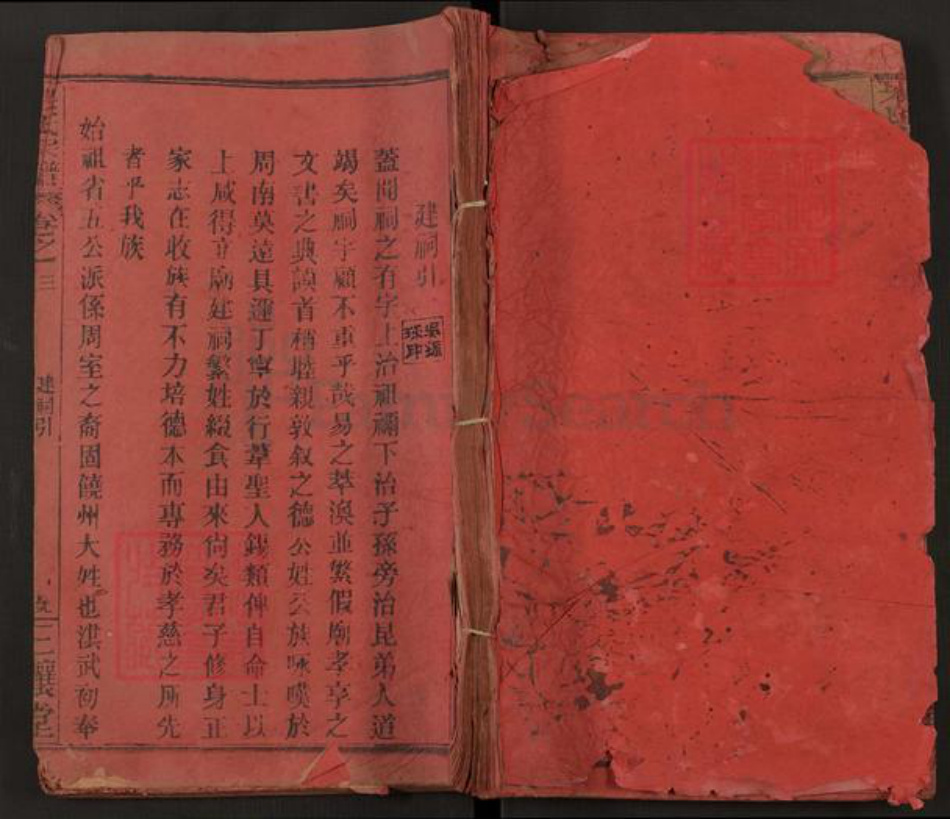 建祠引
蓋聞祠之有字上治祖禰下治子孫旁治昆弟人道
竭矣祠宇顧不重乎哉易之萃渙並繁假廟孝享之
文書之典謨首稱睦親敦敘之德公姓公族咏嘆於
周南莫遠具邇丁寧於行葦聖人錫類俾自命士以
上咸得立廟建祠繫姓綴食由來尙矣君子修身正
家志在收族有不力培德本而專務於孝慈之所先
者乎我族
始祖省五公派係周室之裔固饒州大姓也洪武初奉
氏宗譜
卷之三
建祠引
三讓堂